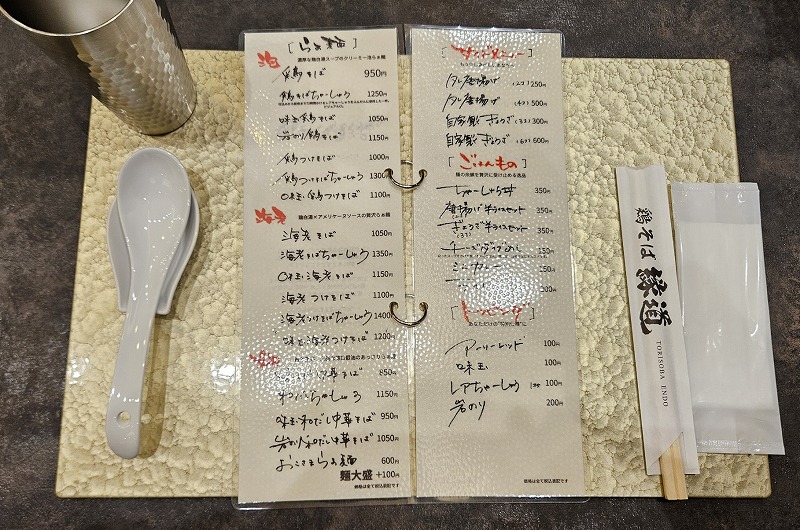 [らぁ麺]
濃厚な鶏白湯スープのクリーミー泡らぁ麺
鶏そば 950円
鶏そばちゃーしゅう 1250円
味玉鶏そば 1050円
岩のり鶏そば 1150円
鶏つけそば 1000円
鶏つけそばちゃーしゅう 1300
味玉鶏つけそば 1100円
鶏白湯×アメリケーヌソースの贅沢らぁ麺
海老そば 1050円
海老そばちゃーしゅう 1350円
味玉海老そば 1150円
海老つけそば 1100円
海老つけそばちゃーしゅう 1400
味玉海老つけそば 1200円
中華そば 850円
ちゃーしゅう 1150円
味玉和だし中華そば 950円
岩のり和だし中華そば 1050円
おこさまらぁ麺 600円
麺大盛 +100円
価格は全て税込表記です
[サイドメニュー]
唐揚げ (2コ) 250円
唐揚げ (4コ) 500円
自家製ぎょうざ (3コ) 300円
自家製ぎょうざ (6コ) 600円
[ごはんもの]
麺の余韻を贅沢に受け止める逸品
ちゃーしゅう丼 350円
唐揚げ半ライスセット 350円
ぎょうざ半ライスセット 350円
ミニカレー
ライス
[トッピング]
アーリーレッド 100円
味玉 100円
レアちゃーしゅう 100円
岩のり 200円
価格は全て税込表記です
鶏そば 縁道
TORISOBA ENDO